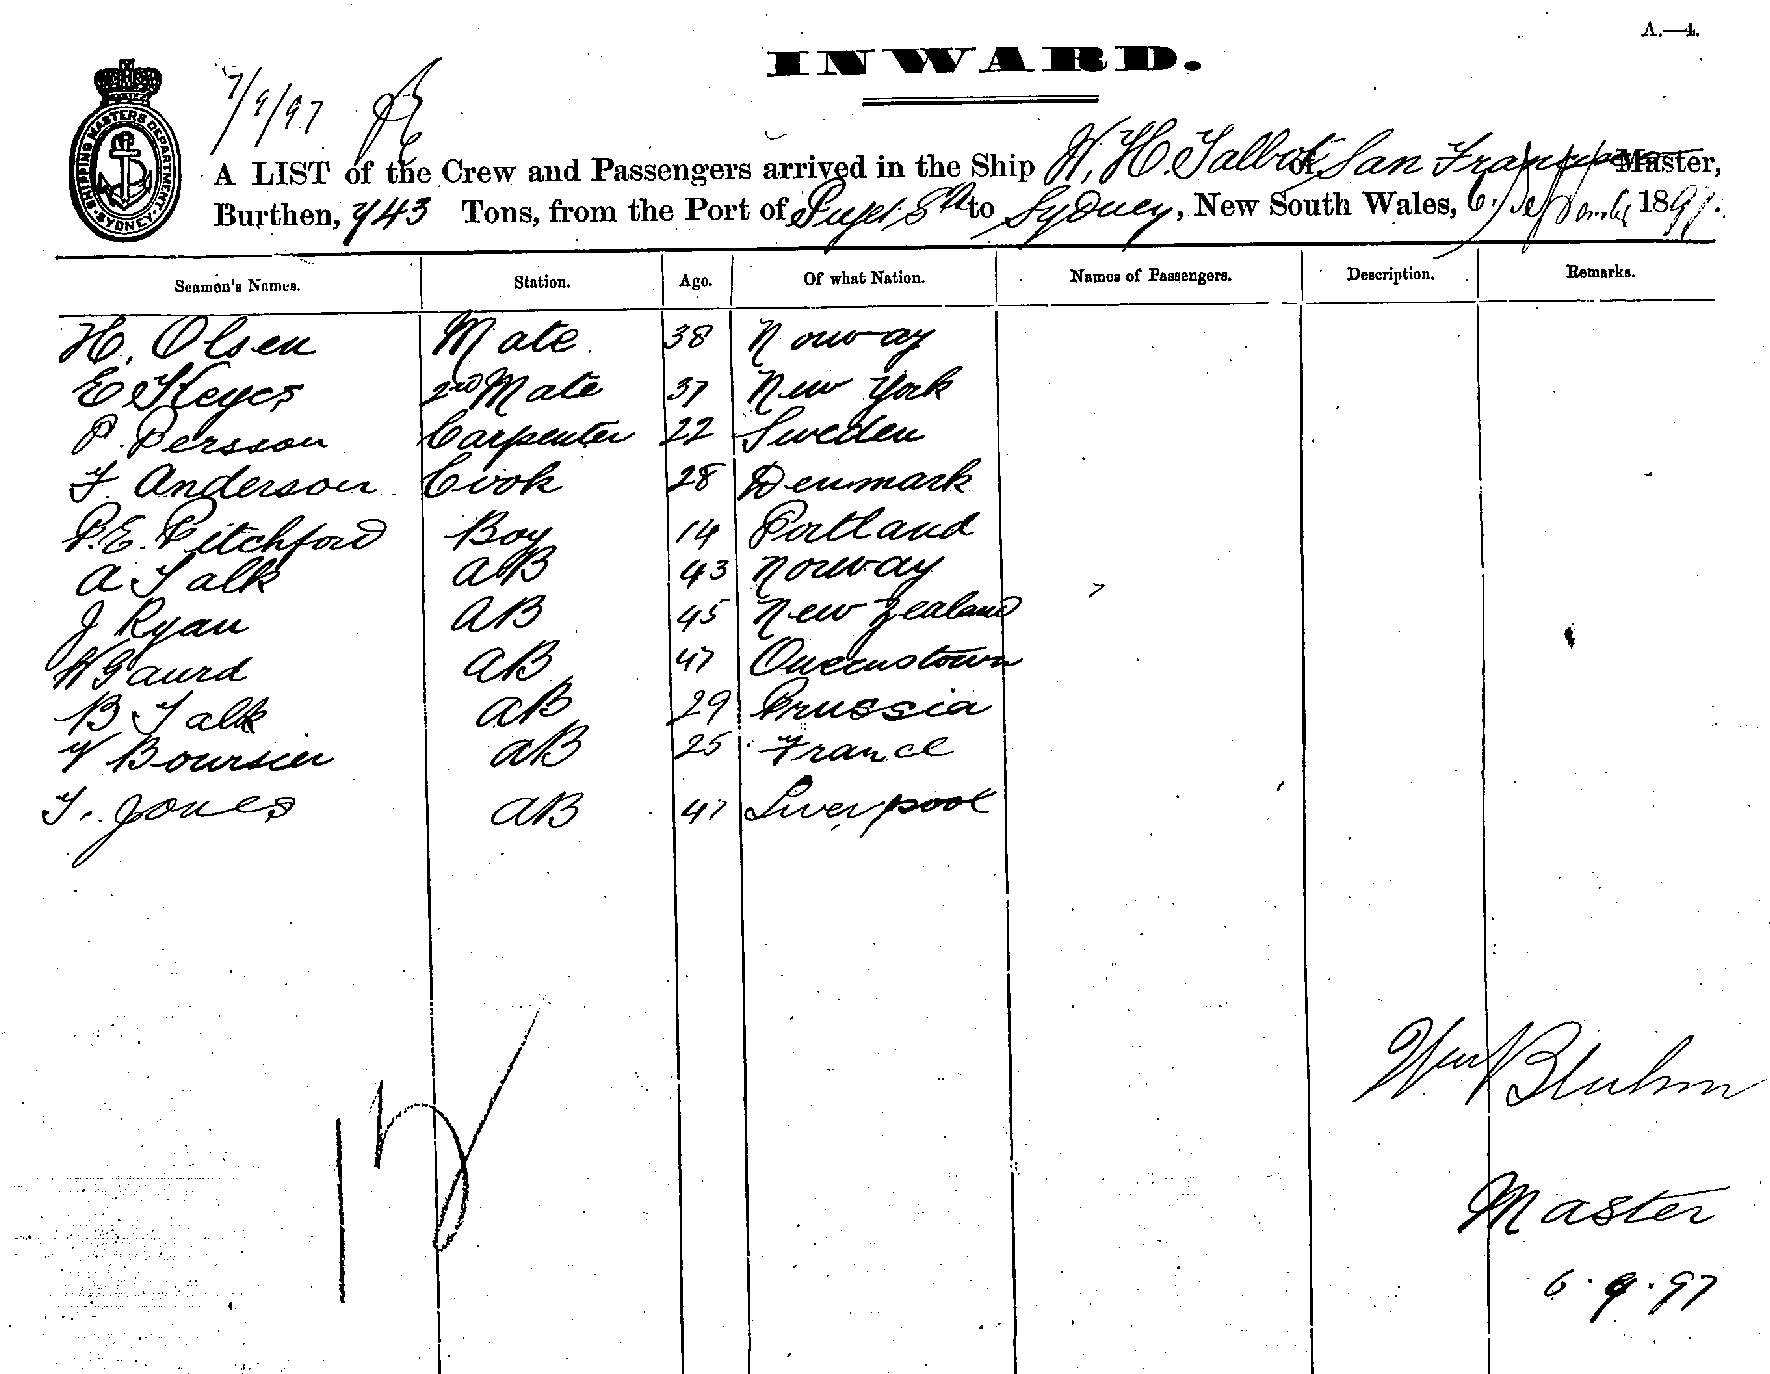 A.—4.
INWARD.
7/9/97
SHIPPING MASTERS DEPARTMENT. SYDNEY.
A LIST of the Crew and Passengers arrived in the Ship W. H. Talbot of San Francisco Master,
Burthen, 743 Tons, from the Port of Puget Sd to Sydney, New South Wales, 6 September 1897.
Seamen's Names. Station. Age. Of what Nation. Names of Passengers. Description. Remarks.
H. Olsen Mate 38 Norway
E Keyes 2nd Mate 37 New York
P. Persson Carpenter 22 Sweden
F. Anderson Cook 28 Denmark
P.E. Pitchford Boy 14 Portland
A Falk AB 43 Norway
J Ryan AB 45 New Zealand
W Gaurd AB 47 Queenstown
B Falk AB 29 Prussia
V Boursier AB 25 France
T. Jones AB 47 Liverpool
Bluhm
12
Master
6.9.97